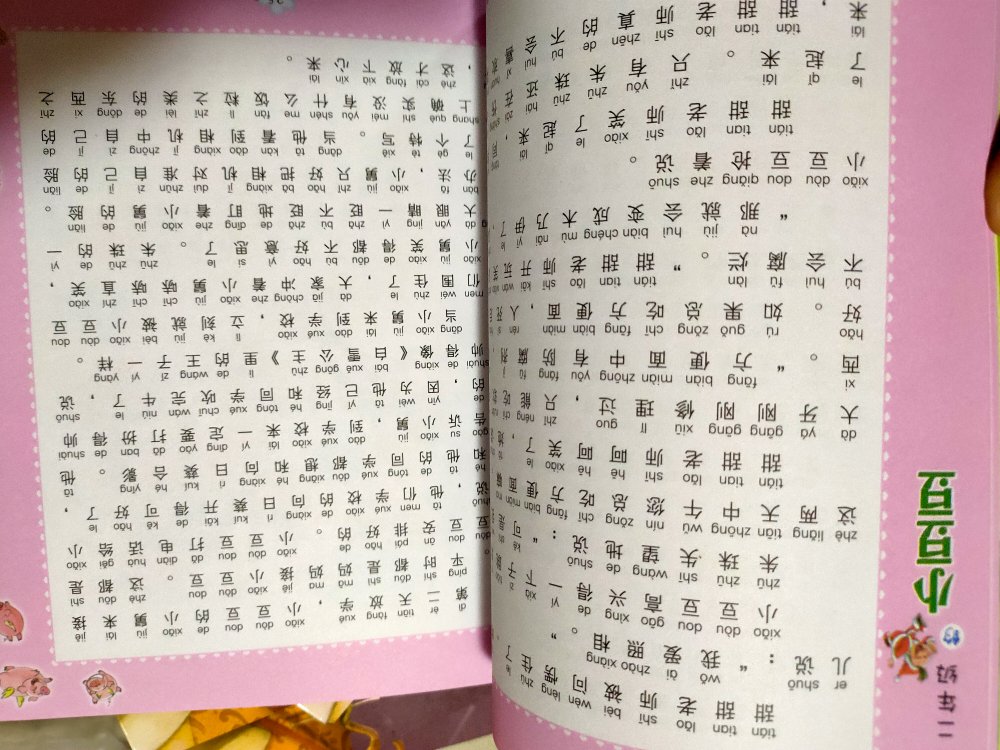 第二天放学，小豆豆的小舅来接
平时都是妈妈接小豆豆。这都是
豆豆安排好的。小豆豆打电话给小
说，他们学校的向日葵开得可好了，
和他的同学都想和向日葵合影。他
告诉小舅，到学校来一定要打扮得帅
的，因为他已经和同学吹完牛了，说
帅得像《白雪公主》里的王子一样。
当小舅来到学校，立刻就被小豆豆
们围住了，大家冲着小舅哧哧直笑，
小舅笑得都不好意思了。朱珠的一
大眼睛一眨不眨地盯着小舅的脸。
办法，小舅只好把相机对准自己的脸
了个特写。当他看到相机中自己的
上确实没有什么饭粒之类的东西之
，这才放下心来。
甜甜老师被问愣住了
儿说：“我爱照相。”
小豆豆高兴得一下子
朱珠失望地说：“可是
这两天中午您总吃方便面
甜甜老师呵呵笑了，
大牙刚刚修理过，只能吃软
西。”“方便面中有防腐剂
好。如果总吃方便面，人死
不会腐烂。”甜甜老师开玩笑
“那就会变成木乃伊了
小豆豆抢着说。
甜甜老师笑了起来，同
了起来。只有朱珠还在伤
来，甜甜老师真的不会喜欢
二年级的小豆豆